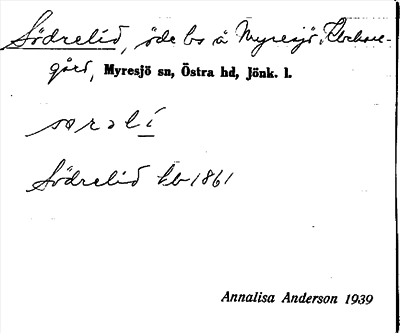 Södrelid, öde bs å Myresjö, Kyrkore-
gård, Myresjö sn, Östra hd, Jönk. l.
sørəlí
Södrelid kb 1861
Annalisa Anderson 1939